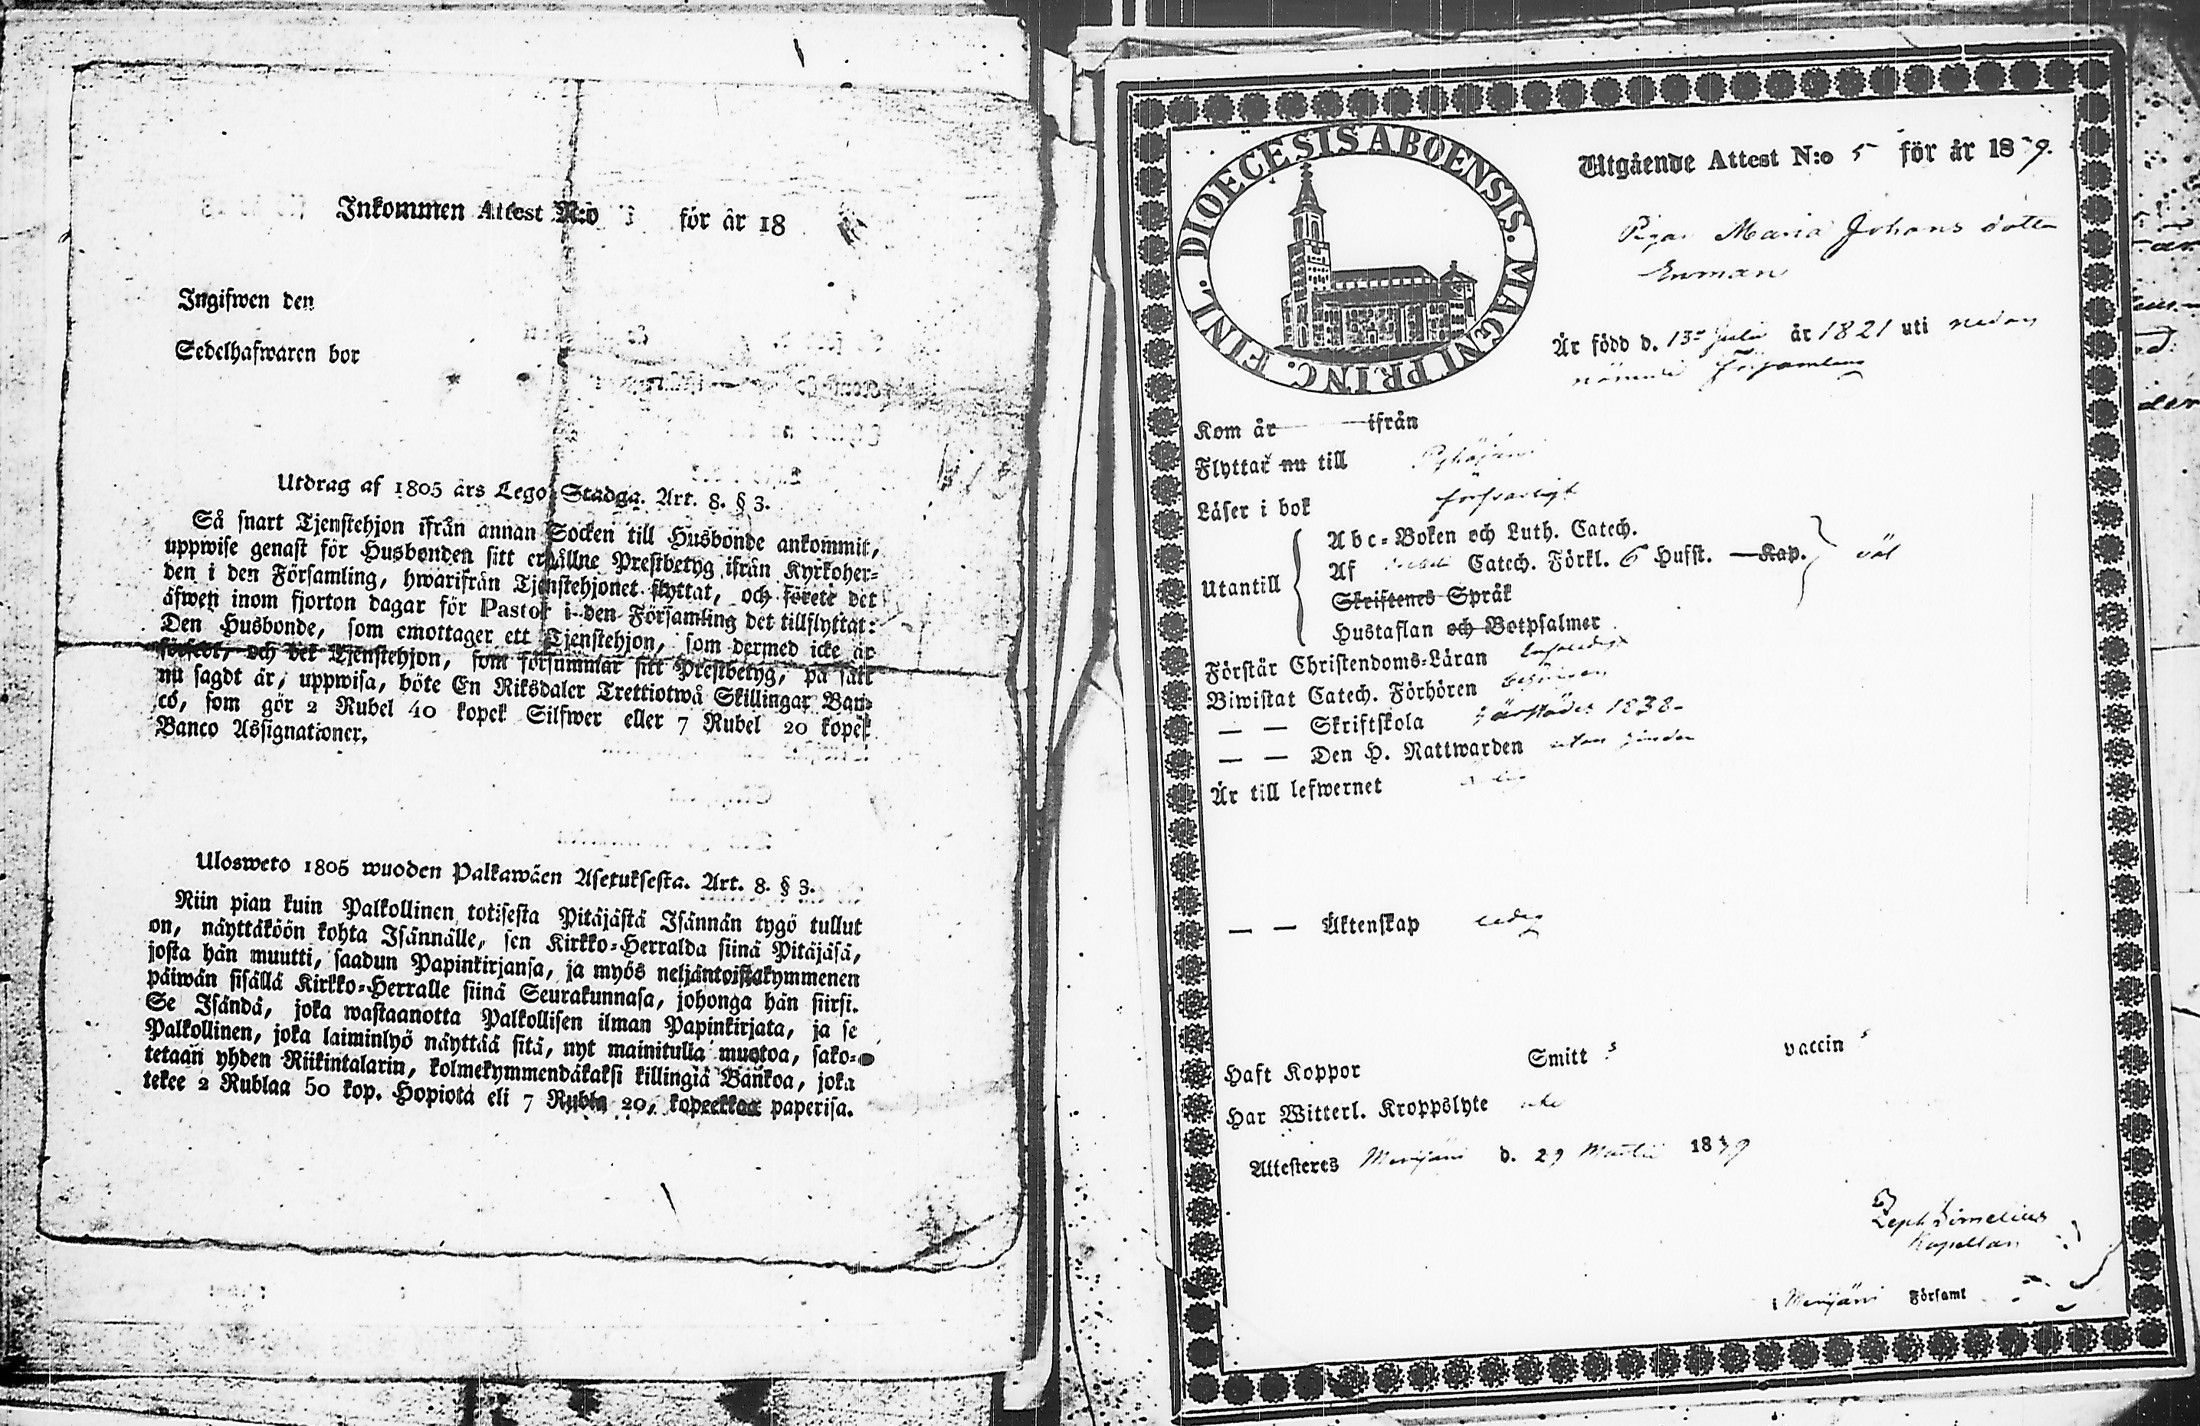 Inkommen Attest N:o för år 18
Ingifwen den
Sedelhafwaren bor
Utdrag af 1805 års Lego-Stadga. Art. 8. § 3.
Så snart Tjenstehjon ifrån annan Socken till Husbonde ankommit,
uppwise genast för Husbonden sitt erhållne Prestbetyg ifrån Kyrkoher-
den i den Församling, hwarifrån Tjenstehjonet flyttat, och förete det
äfwen inom fjorton dagar för Pastor i den Församling det tillflyttat:
Den Husbonde, som emottager ett Tjenstehjon, som dermed icke är
försedt, och det Tjenstehjon, som försummar sitt Prestbetyg, på sätt
nu sagdt är, uppwisa, böte En Riksdaler Trettiotwå Skillingar Ban-
co, som gör 2 Rubel 40 kopek Silfwer eller 7 Rubel 20 kopek
Banco Assignationer.
Ulosweto 1805 wuoden Palkawäen Asetuksesta. Art. 8. § 3.
Niin pian kuin Palkollinen toisesta Pitäjästä Isännän tygö tullut
on, näyttäköön kohta Isännälle, sen Kirkko-Herralda siinä Pitäjäsä,
josta hän muutti, saadun Papinkirjansa, ja myös neljäntoistakymmenen
päiwän sisällä Kirkko-Herralle siinä Seurakunnasa, johonga hän siirsi.
Se Isändä, joka wastaanotta Palkollisen ilman Papinkirjata, ja se
Palkollinen, joka laiminlyö näyttää sitä, nyt mainitulla muotoa, sako-
tetaan yhden Riikintalarin, kolmekymmendäkaksi killingiä Bankoa, joka
tekee 2 Rublaa 50 kop. Hopiota eli 7 Rubla 20, kopeekkaa paperisa.
DIOECESIS ABOENSIS. MAGNI PRINC. FINL.
Utgående Attest N:o 5 för år 1839.
Pigan Maria Johans dotter
Enman
Är född d. 13de Julii år 1821 uti nedan
nämnde Församling
Kom år — ifrån
Flyttar nu till Pyhäjärvi
Läser i bok försvarligt
Utantill
Abc-Boken och Luth. Catech.
Af Catech. Förkl. 6 Hufst. — Kap. väl
Skriftenes Språk
Hustaflan och Botpsalmer
Förstår Christendoms-Läran
Biwistat Catech. Förhören
— — Skriftskola 1838
— — Den H. Nattwarden
Är till lefwernet
— — Äktenskap ledig
Haft Koppor Smitt vaccin
Har Witterl. Kroppslyte icke
Attesteres d. 29 Martii 1839
Kapellan
Församl